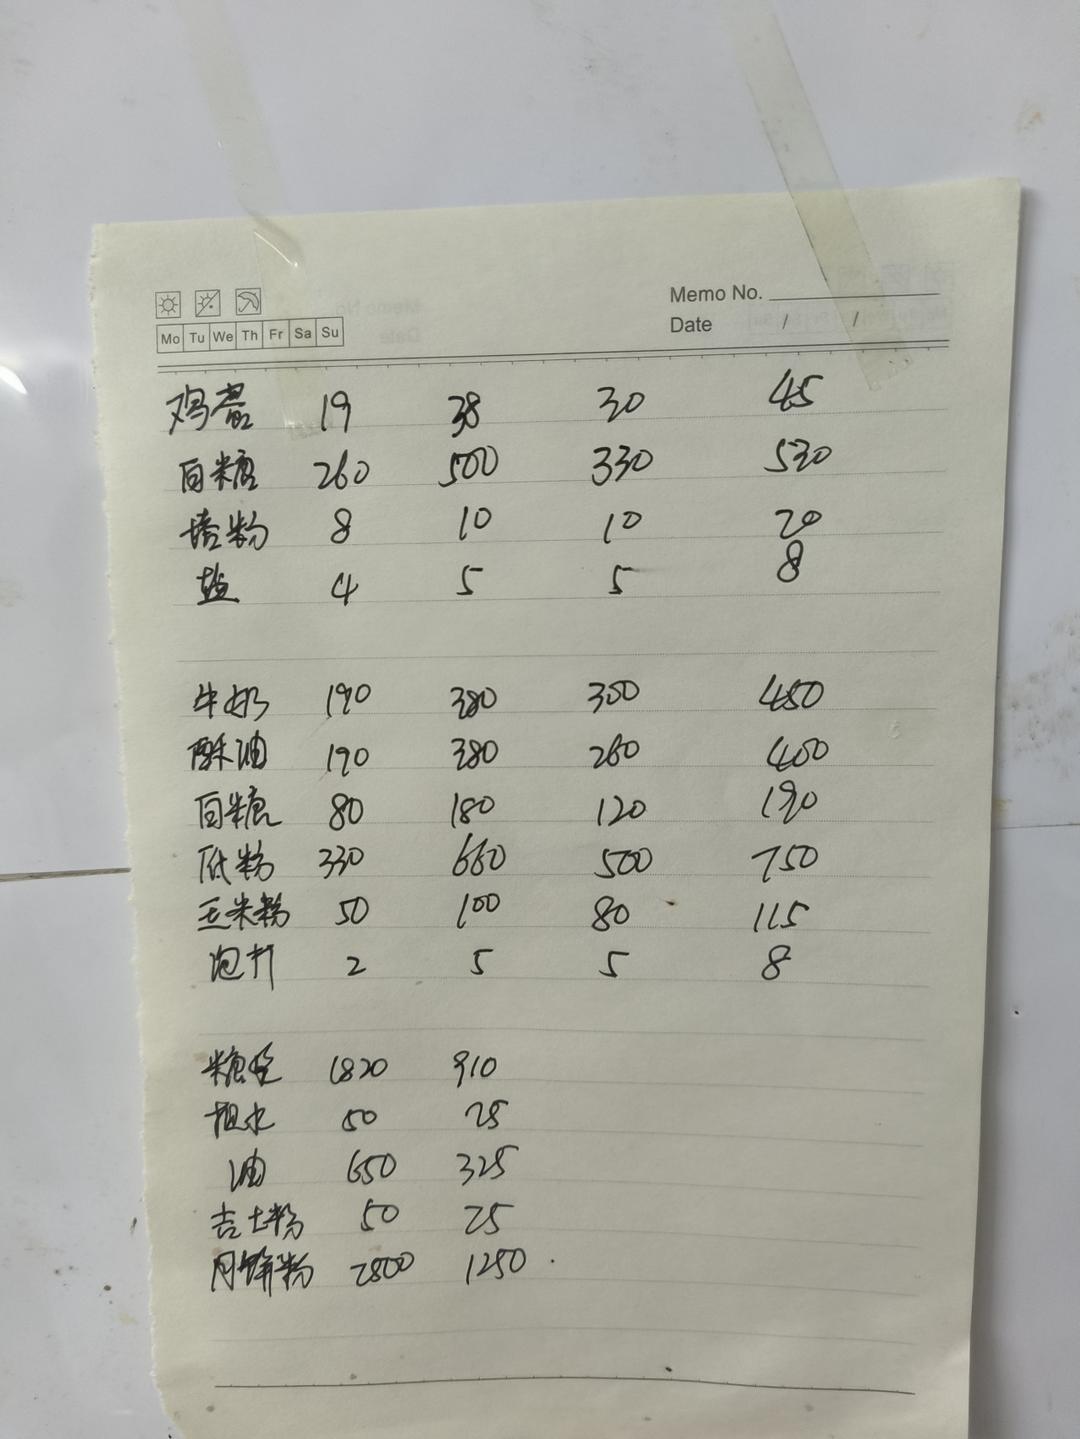 Memo No.
Mo Tu We Th Fr Sa Su
Date / /
鸡蛋 19 38 30 45
白糖 260 500 330 530
塔粉 8 10 10 20
盐 4 5 5 8
牛奶 190 380 300 450
酥油 190 380 260 400
白糖 80 180 120 190
低粉 330 660 500 750
玉米粉 50 100 80 115
泡打 2 5 5 8
糖 1820 910
枧水 50 25
油 650 325
吉士粉 50 25
月饼粉 2500 1250